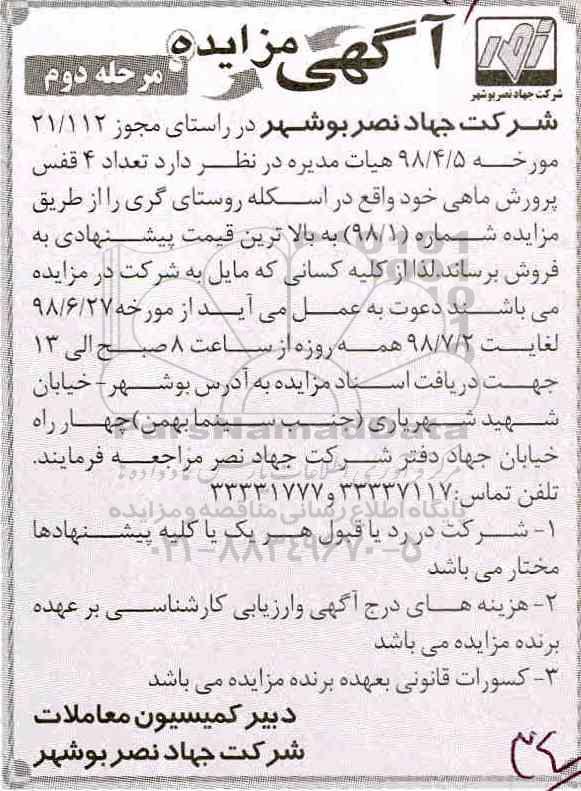 آگهی مزایده
مرحله دوم
شرکت جهاد نصر بوشهر
شرکت جهاد نصر بوشهر در راستای مجوز ۲۱/۱۱۲
مورخه ۹۸/۴/۵ هیات مدیره در نظر دارد تعداد ۴ قفس
پرورش ماهی خود واقع در اسکله روستای گری را از طریق
مزایده شماره (۹۸/۱) به بالا ترین قیمت پیشنهادی به
فروش برساند.لذا از کلیه کسانی که مایل به شرکت در مزایده
می باشند دعوت به عمل می آید از مورخه ۹۸/۶/۲۷
لغایت ۹۸/۷/۲ همه روزه از ساعت ۸ صبح الی ۱۳
جهت دریافت اسناد مزایده به آدرس بوشهر- خیابان
شهید شهریاری (جنب سینما بهمن) چهار راه
خیابان جهاد دفتر شرکت جهاد نصر مراجعه فرمایند.
تلفن تماس: ۳۳۳۳۷۱۱۷ و ۳۳۳۳۱۷۷۷
۱- شرکت در رد یا قبول هر یک یا کلیه پیشنهادها
مختار می باشد
۲- هزینه های درج آگهی وارزیابی کارشناسی بر عهده
برنده مزایده می باشد
۳- کسورات قانونی بعهده برنده مزایده می باشد
دبیر کمیسیون معاملات
شرکت جهاد نصر بوشهر
۳۴
ParsNamadData
پایگاه اطلاع رسانی مناقصه و مزایده
۰۲۱-۸۸۳۴۹۶۷۰-۵